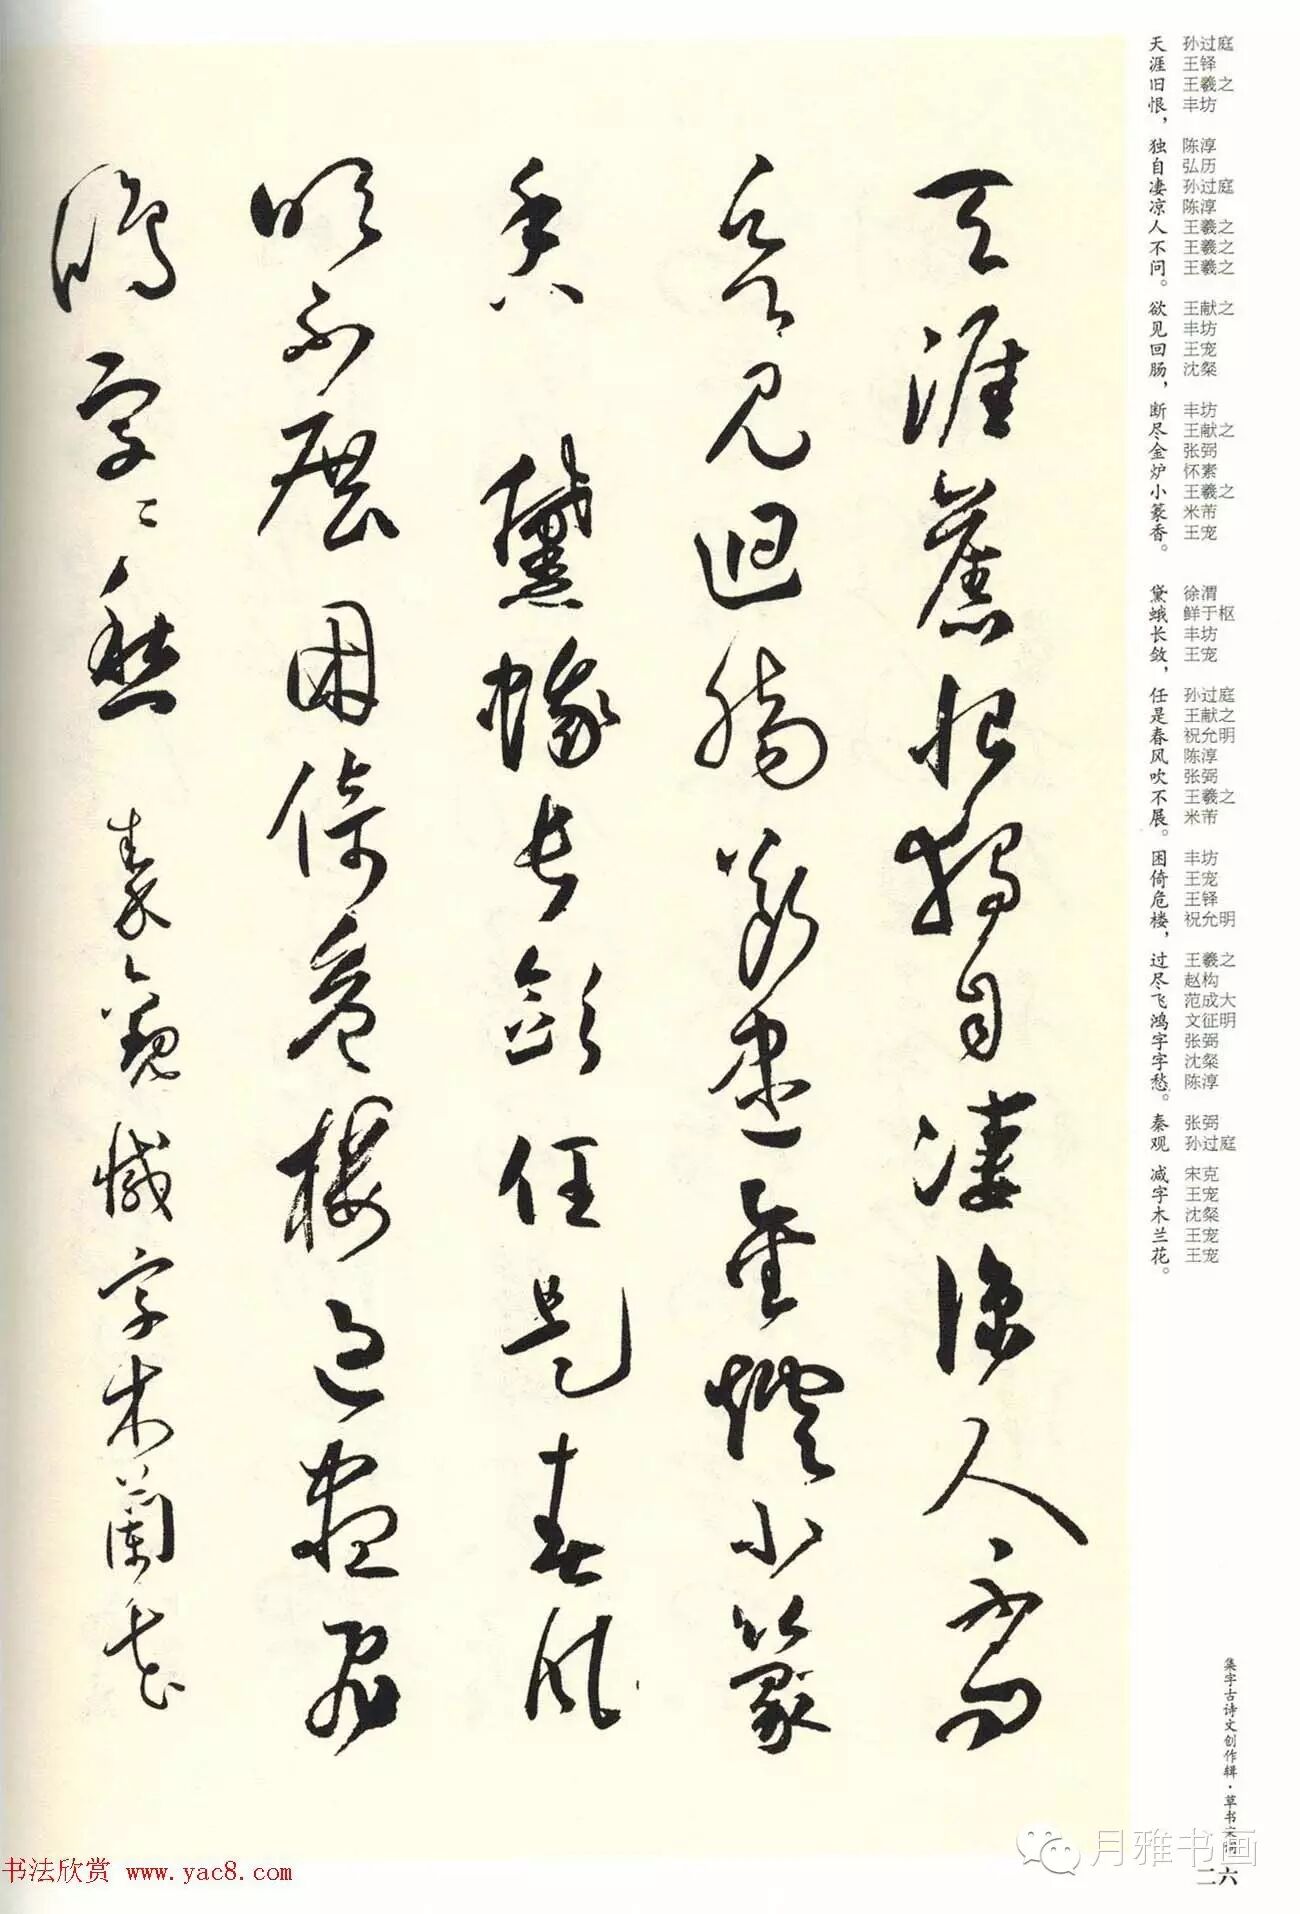 天涯旧恨，独自凄凉人不问。欲见回肠，断尽金炉小篆香。
黛蛾长敛，任是春风吹不展。困倚危楼，过尽飞鸿字字愁。
秦观 减字木兰花。
孙过庭
王铎
王羲之
丰坊
陈淳
弘历
孙过庭
陈淳
王羲之
王羲之
王羲之
王献之
丰坊
王宠
沈粲
丰坊
王献之
张弼
怀素
王羲之
米芾
王宠
徐渭
鲜于枢
丰坊
王宠
孙过庭
王献之
祝允明
陈淳
张弼
王羲之
米芾
丰坊
王宠
王铎
祝允明
王羲之
赵构
范成大
文征明
张弼
沈粲
陈淳
张弼
孙过庭
宋克
王宠
沈粲
王宠
王宠
天涯舊恨獨自凄涼人不問
欲見迴腸斷盡金爐小篆
香 黛蛾長斂任是春風
吹不展困倚危樓過盡飛
鴻字〻愁 秦觀 減字木蘭花
集字古诗文创作辑·草书宋词
二六
月雅书画
书法欣赏 www.yac8.com